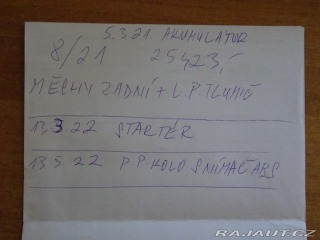 5.3 21. AKUMULÁTOR
8/21 25423,-
MĚCHY ZADNÍ + L.P. TLUMIČ
13 3 22 STARTÉR
13 5 22 P.P. KOLO SNÍMAČ ABS
RAJAUT.CZ